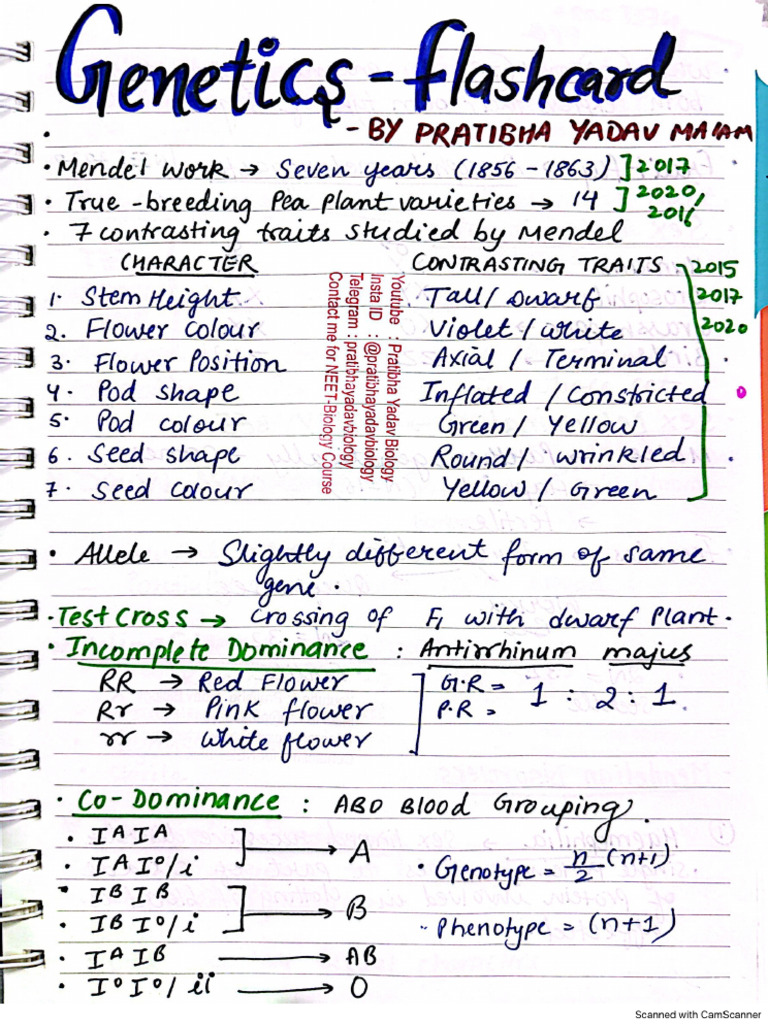 Genetics - flashcard
- BY PRATIBHA YADAV MAAM
• Mendel work → Seven years (1856 - 1863) ] 2017
• True-breeding Pea plant varieties → 14 ] 2020, 2016
• 7 contrasting traits studied by Mendel
CHARACTER CONTRASTING TRAITS 2015
1. Stem Height Tall / Dwarf 2017
2. Flower colour Violet / White 2020
3. Flower Position Axial / Terminal
4. Pod shape Inflated / Constricted
5. Pod colour Green / Yellow
6. Seed shape Round / wrinkled
7. Seed colour Yellow / Green
Youtube : Pratibha Yadav Biology
Insta ID : @pratibhayadavbiology
Telegram : pratibhayadavbiology
Contact me for NEET-Biology Course
• Allele → Slightly different form of same
gene.
• Test Cross → Crossing of F1 with dwarf Plant.
• Incomplete Dominance : Antirrhinum majus
RR → Red Flower G.R =
Rr → Pink flower P.R = 1 : 2 : 1
rr → White flower
• Co-Dominance : ABO Blood Grouping.
• IA IA
• IA Io/i → A
• Genotype = n/2 (n+1)
• IB IB
• IB Io/i → B
• Phenotype = (n+1)
• IA IB → AB
• Io Io/ ii → O
Scanned with CamScanner